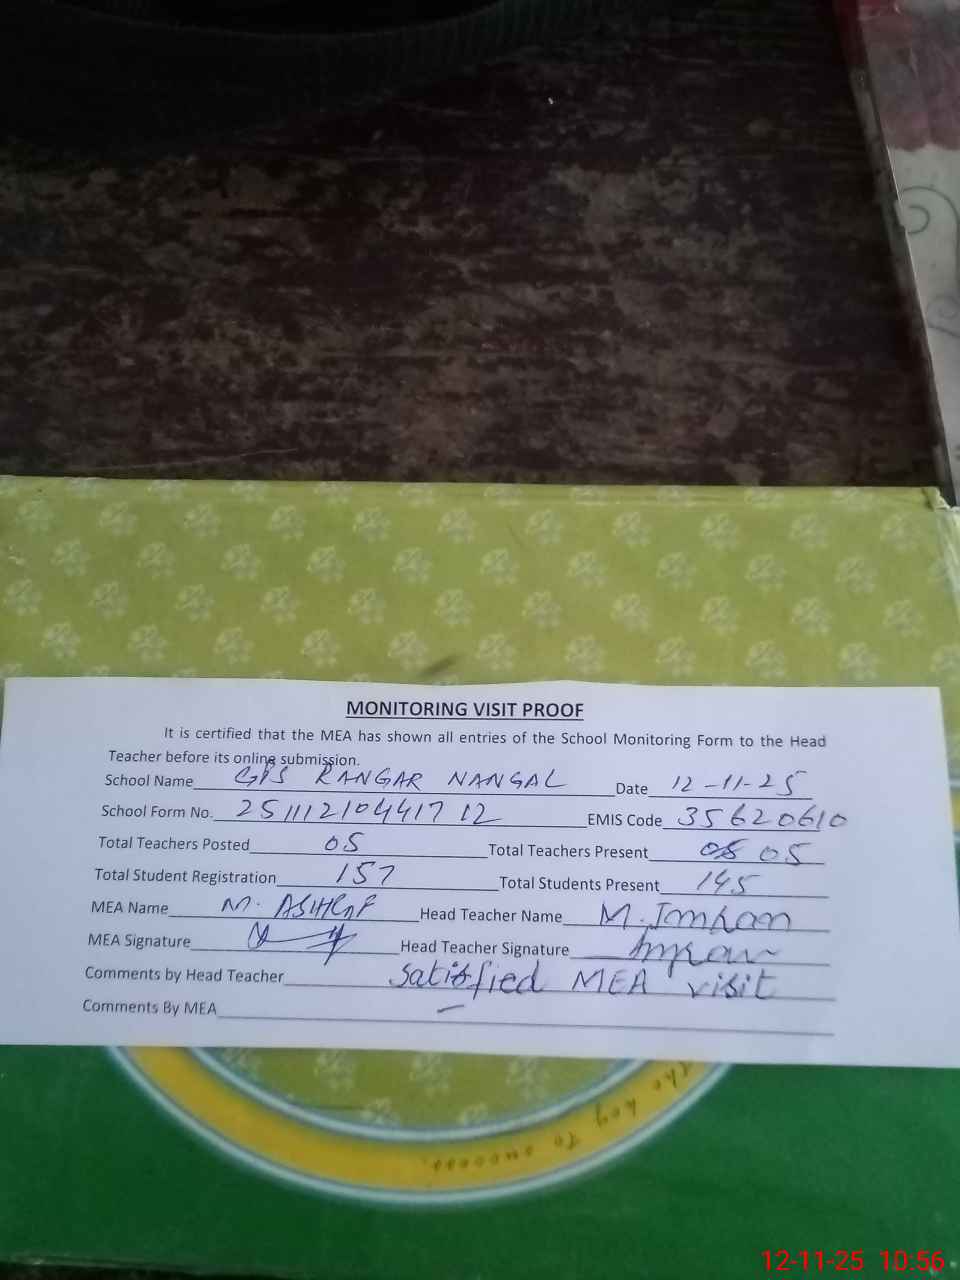 MONITORING VISIT PROOF
It is certified that the MEA has shown all entries of the School Monitoring Form to the Head
Teacher before its online submission.
School Name GPS RANGAR NANGAL Date 12-11-25
School Form No. 25111210441712 EMIS Code 35620610
Total Teachers Posted 05 Total Teachers Present 05
Total Student Registration 157 Total Students Present 145
MEA Name M. ASHRAF Head Teacher Name M. Imran
MEA Signature Head Teacher Signature Imran
Comments by Head Teacher satisfied MEA visit
Comments By MEA –
the key to success.
12-11-25 10:56